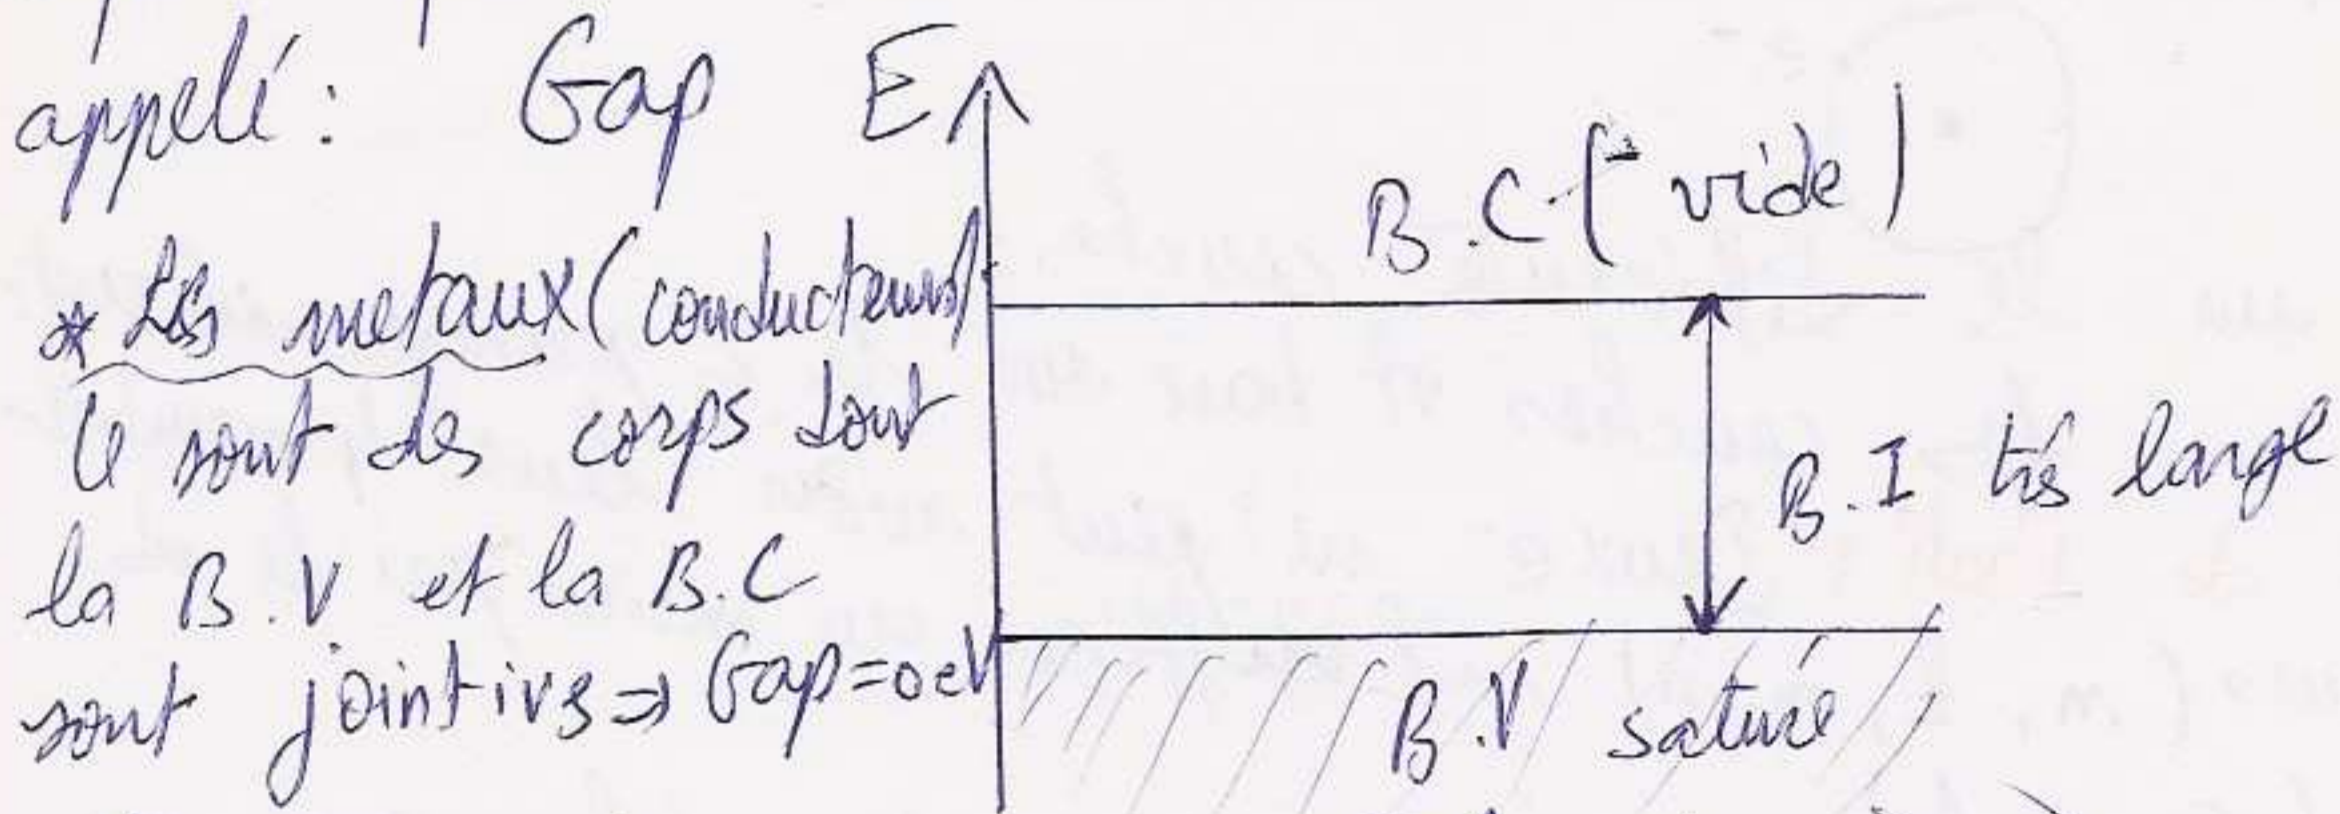 appelé: Gap
* Les metaux (conducteurs)
Ce sont des corps dont
la B.V et la B.C
sont jointives => Gap=0eV
E
B.C (vide)
B.I très large
B.V saturé